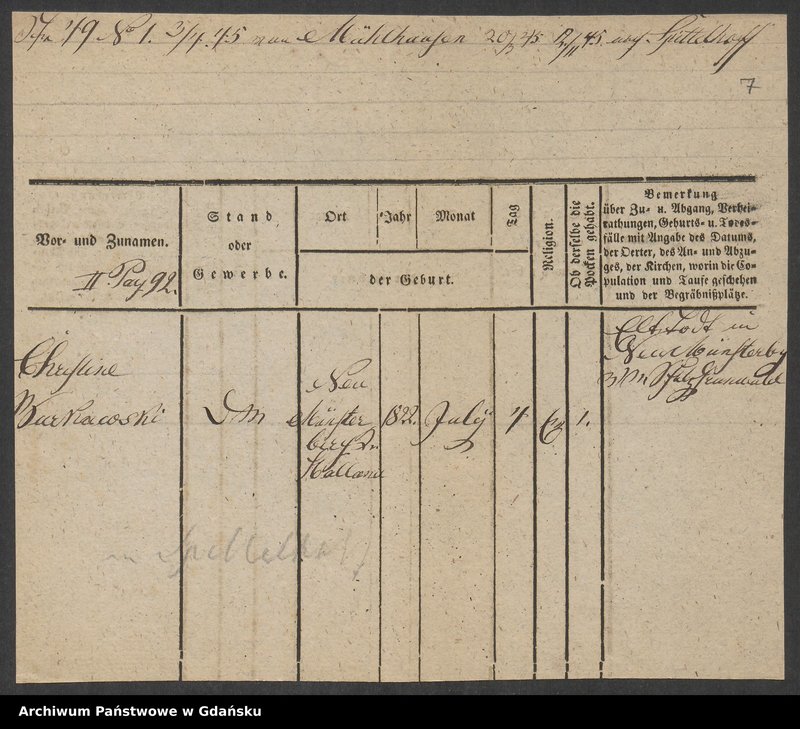 49 No 1. 3/4 45 von Mühlhausen 20/3 45 45 nach Spittelhoff
7
Vor- und Zunamen.
II Pag 92.
Stand
oder
Gewerbe.
Ort
Jahr
Monat
Tag
der Geburt.
Religion.
Ob derselbe die
Pocken gehabt.
Bemerkung
über Zu- u. Abgang, Verhei-
rathungen, Geburts- u. Todes-
fälle mit Angabe des Datums,
der Oerter, des An- und Abzu-
ges, der Kirchen, worin die Co-
pulation und Taufe geschehen
und der Begräbnißplätze.
Elt. todt in
Neu Münsterberg
Christine
Burkacoski
DM
Neu
Münster
berg Pr.
Holland
1822.
July
4
1.
in Spittelhof
Archiwum Państwowe w Gdańsku